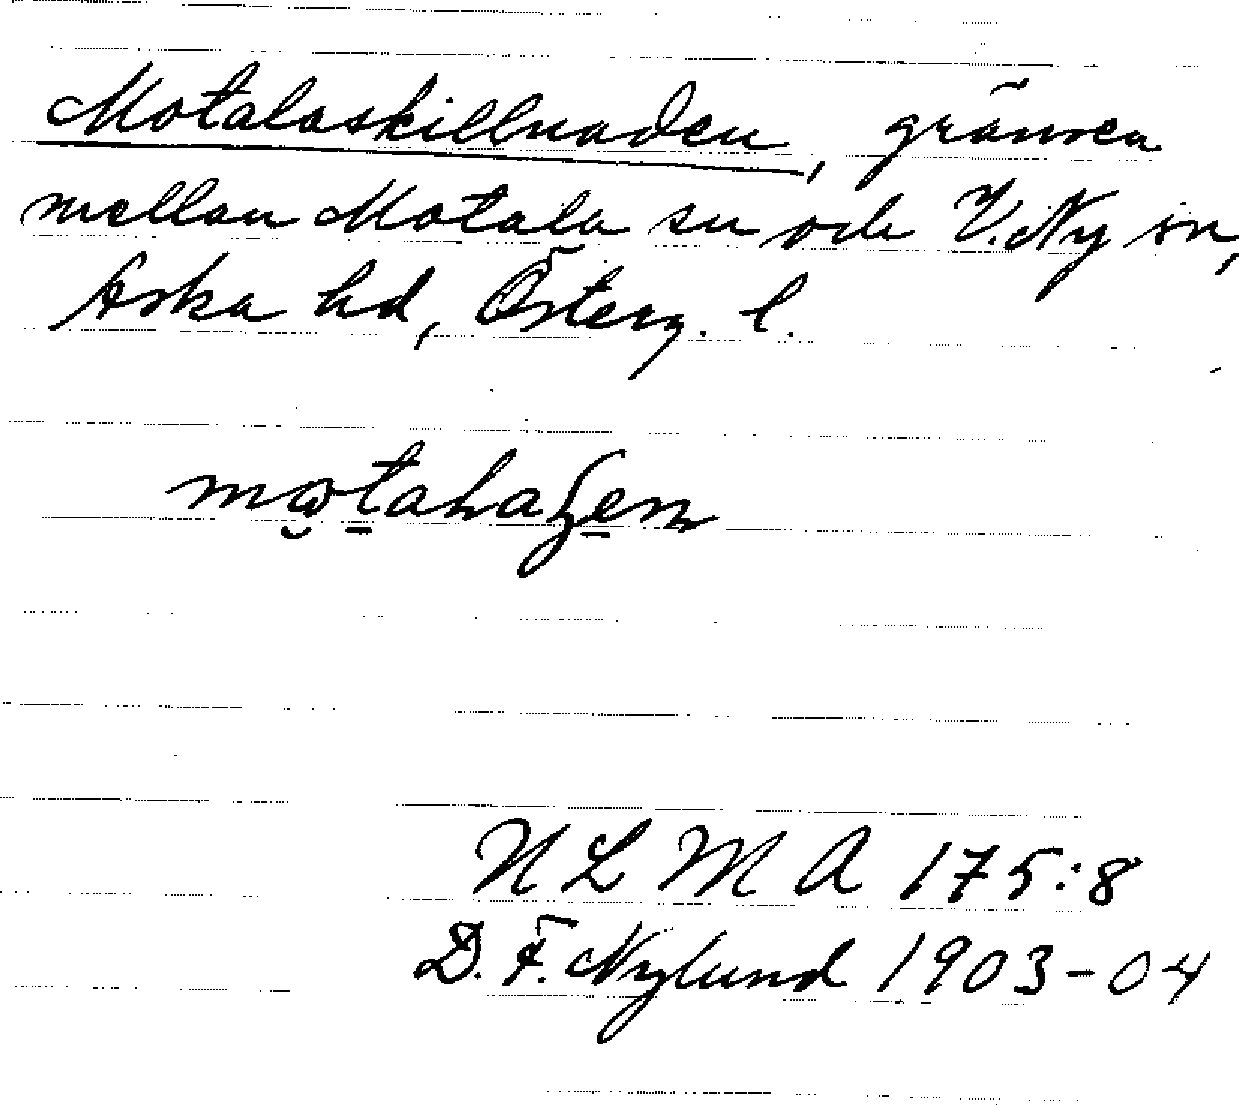 Motalaskillnaden, gränsen
mellan Motala sn och V. Ny sn,
Aska hd, Österg. l.
N L M A 175:8
D. F. Nylund 1903-04